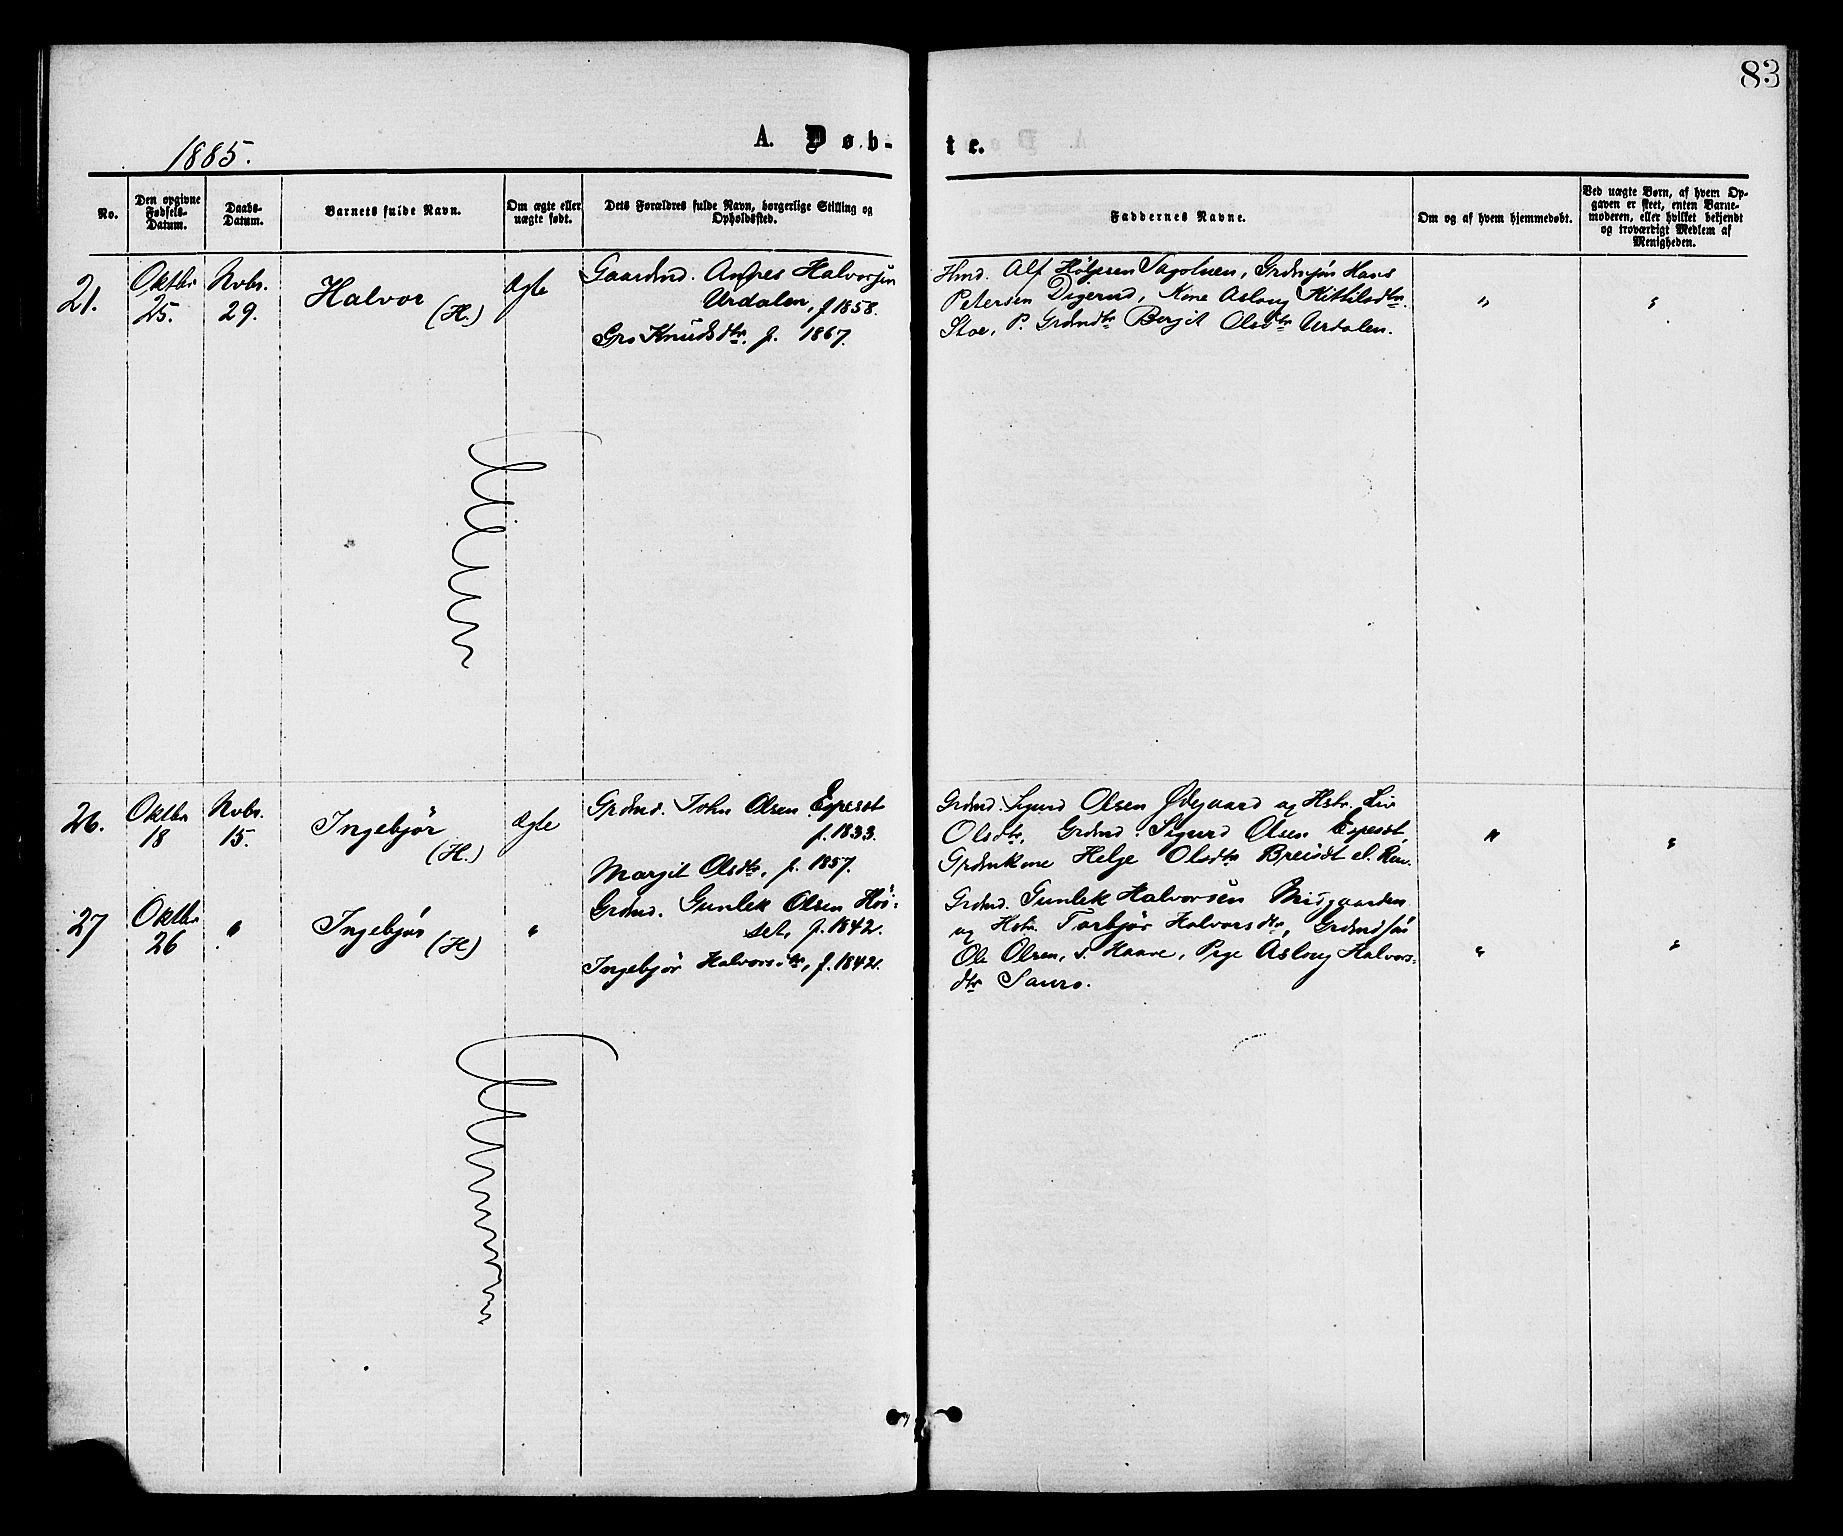 83
1885.
A. Døb-
te.
No.
Den opgivne Fødsels-Datum.
Daabs-Datum.
Barnets fulde Navn.
Om ægte eller uægte født.
Dets Forældres fulde Navn, borgerlige Stilling og Opholdssted.
Faddernes Navne.
Om og af hvem hjemmedøbt.
Ved uægte Børn, af hvem Opgaven er skeet, enten Barnemoderen, eller hvilket bekjendt og troværdigt Medlem af Menigheden.
21.
Oktbr
25.
Nvbr.
29.
Halvor
(H.)
Ægte
Gaardmd. Anfres Halvorsen
Urdalen, f. 1858.
Gro Knudsdtr. f. 1867.
Hmd. Alf Høljesen, Grdmsøn Hans
Petersen Digerud, Kone Aslaug Kittilsdtr.
Stoe, P. Grdmdtr Bergit Olsdtr Urdalen.
"
"
26.
Oktbr
18
Nvbr.
15.
Ingebjør
(H.)
Ægte
Grdmd. John Olsen
f. 1833.
Margit Olsdtr, f. 1857.
Grdmd. Sigurd Olsen Ødegaard og Hstr. Liv
Olsdtr, Grdmd. Sigurd Olsen
Grdmkone Helge Olsdtr
"
"
27
Oktbr
26
"
Ingebjør
(H)
"
Grdmd. Gunlek Olsen Høi-
set, f. 1842.
Ingebjør Halvorsdtr, f. 1842.
Grdmd. Gunlek Halvorsen Midgaarden
og Hstr. Torbjør Halvorsdtr, Grdmdsøn
Ole Olsen, s. Haave, Pige Aslaug Halvors-
dtr Sauro.
"
"